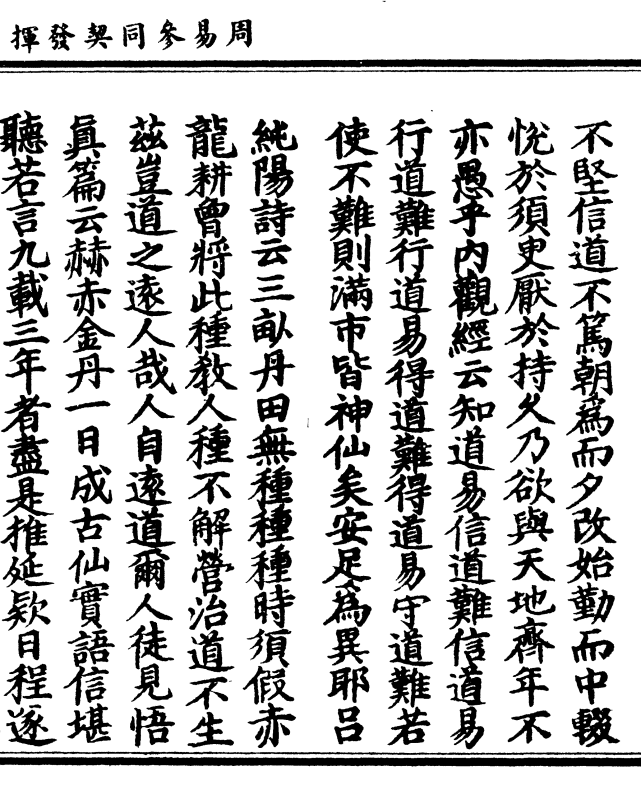 周易參同契發揮
不堅信道不篤朝爲而夕改始勤而中輟
悅於須臾厭於持久乃欲與天地齊年不
亦愚乎內觀經云知道易信道難信道易
行道難行道易得道難得道易守道難若
使不難則滿市皆神仙矣安足爲異耶呂
純陽詩云三畝丹田無種種種時須假赤
龍耕曾將此種教人種不解營治道不生
茲豈道之遠人哉人自遠道爾人徒見悟
眞篇云赫赤金丹一日成古仙實語信堪
聽若言九載三年者盡是推延款日程遂